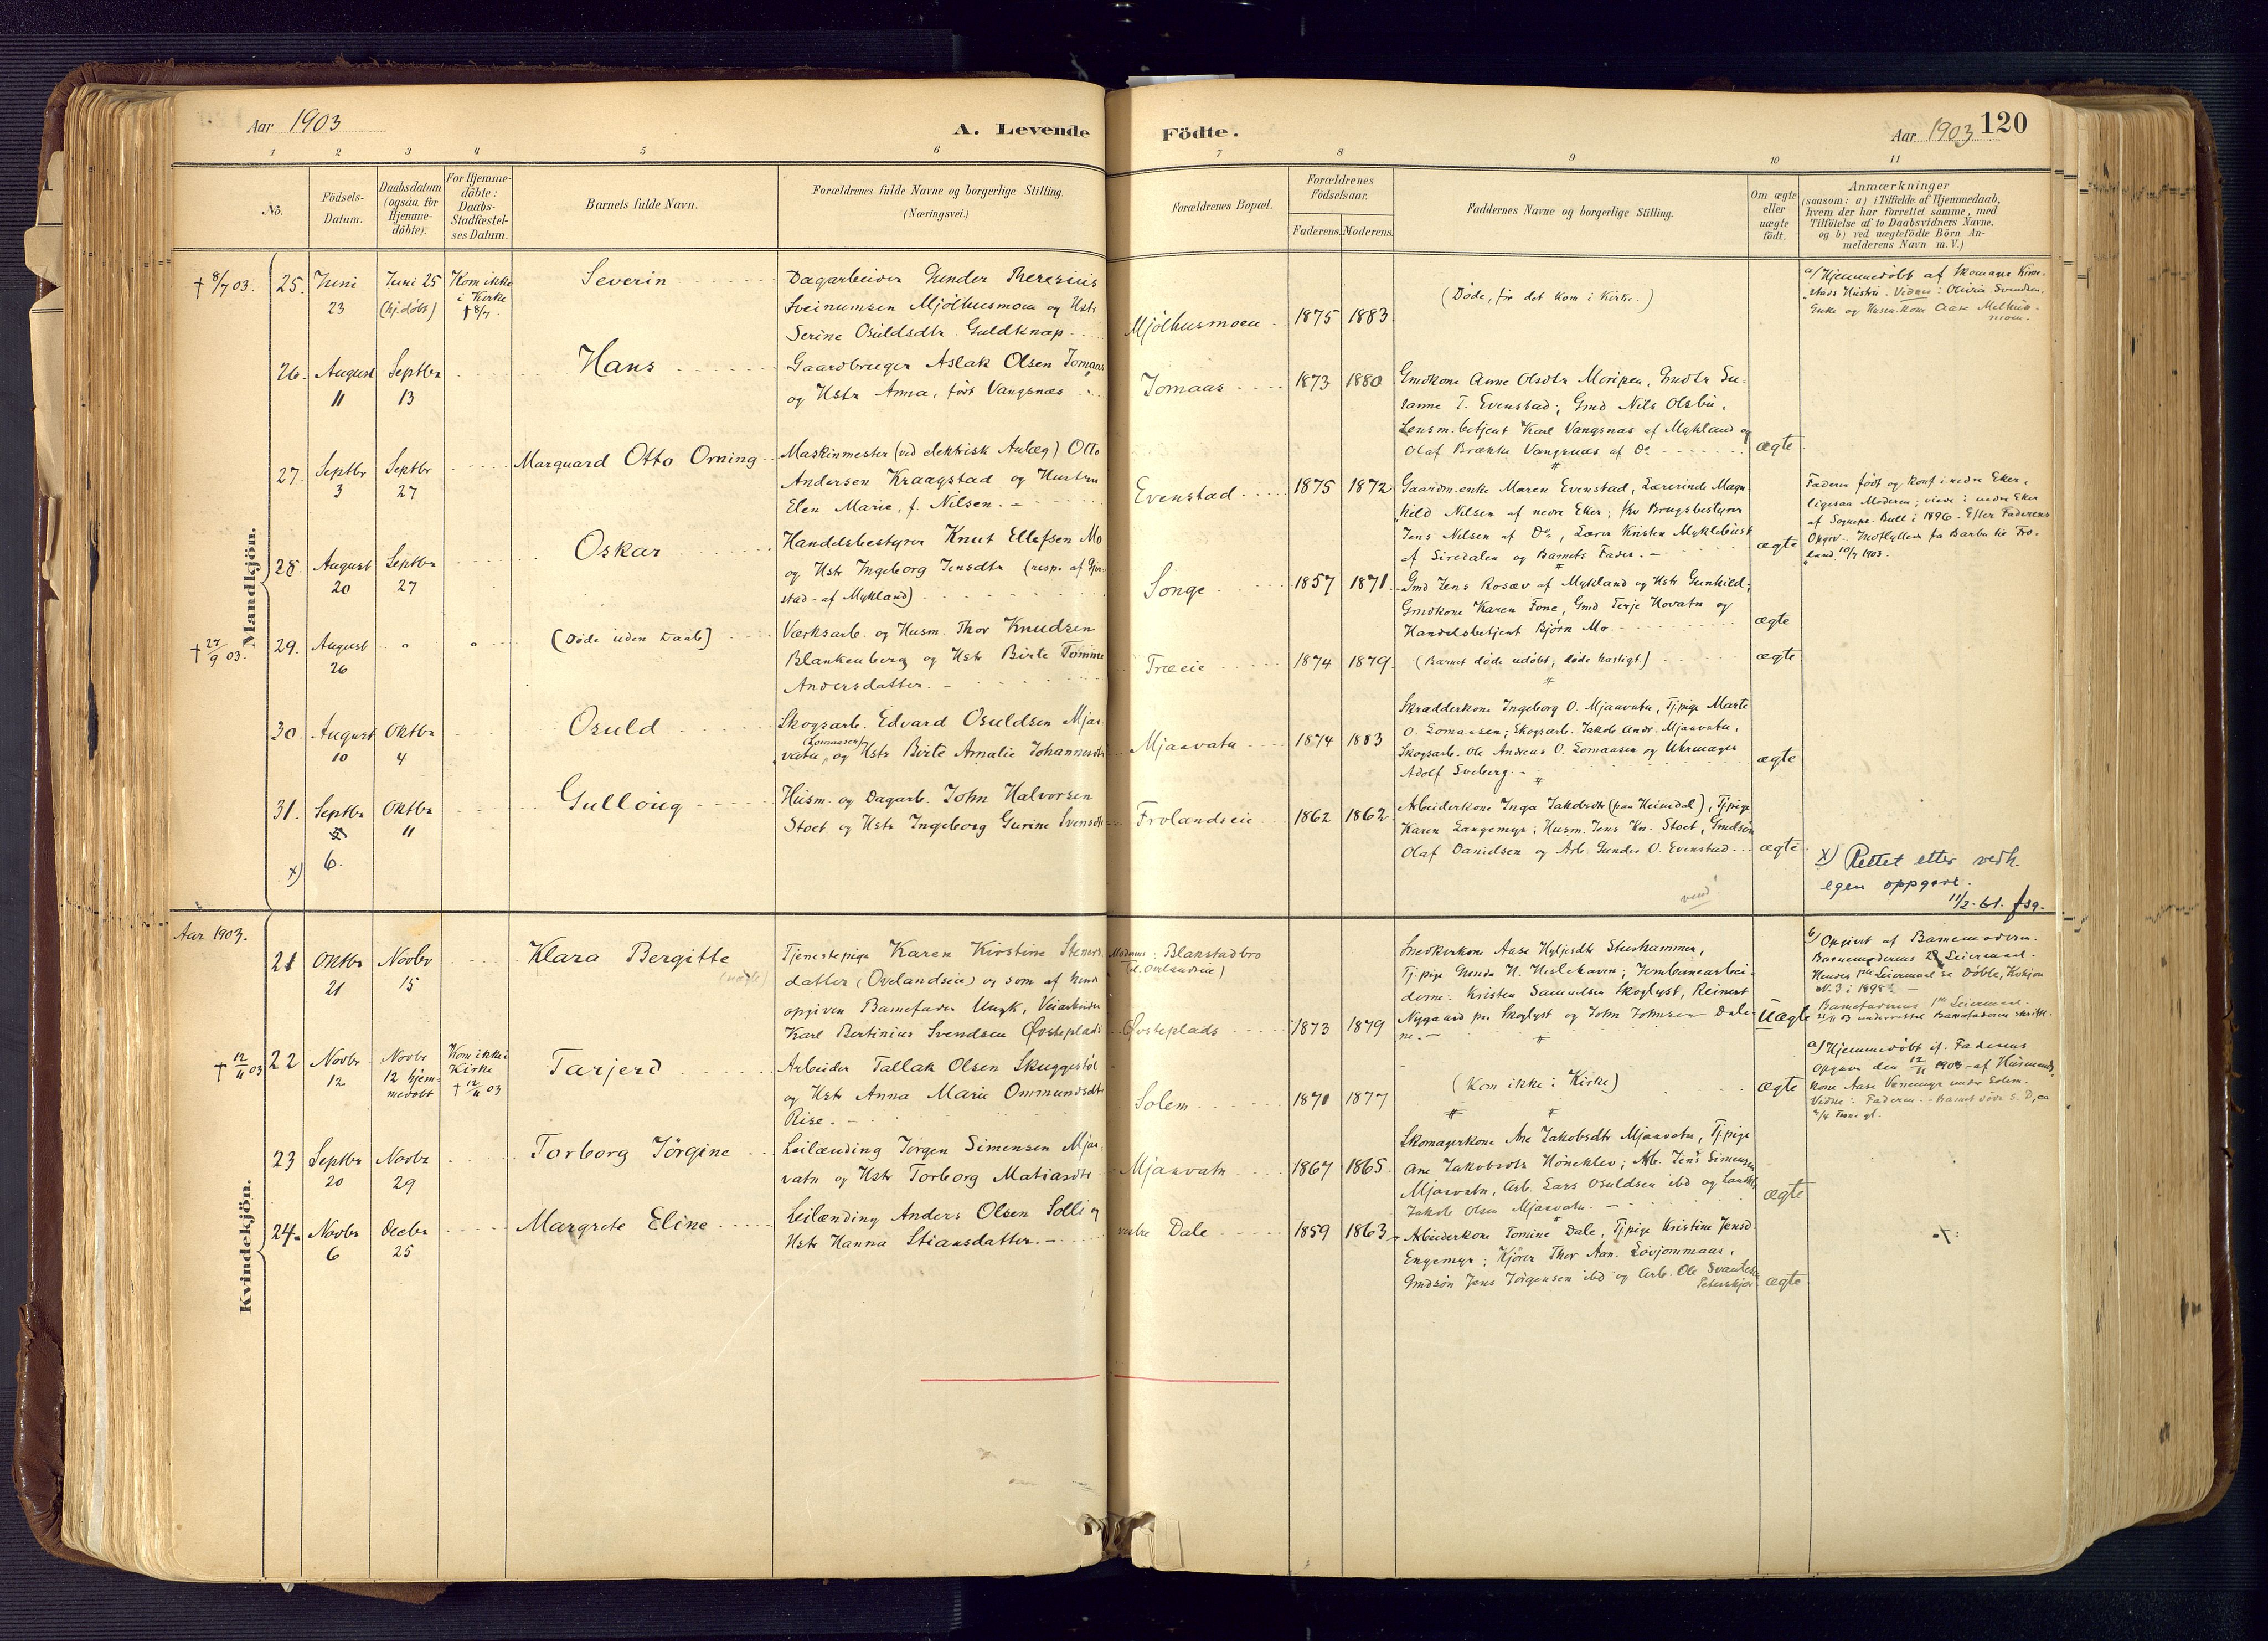 Aar 1903
A. Levende Födte.
Aar 1903 120
1 2 3 4 5 6 7 8 9 10 11
No.
Födsels-
Datum.
Daabsdatum
(ogsaa for
Hjemme-
döbte).
For Hjemme-
döbte:
Daabs-
Stadfæstel-
ses Datum.
Barnets fulde Navn.
Forældrenes fulde Navne og borgerlige Stilling.
(Næringsvei.)
Forældrenes Bopæl.
Forældrenes
Födselsaar.
Faderens. Moderens.
Faddernes Navne og borgerlige Stilling.
Om ægte
eller
uægte
født.
Anmærkninger
(saasom: a) i Tilfælde af Hjemmedaab,
hvem der har forrettet samme, med
Tilföielse af to Daabsvidners Navne,
og b) ved uægtefödte Börn An-
melderens Navn m. V.)
Mandkjön.
† 8/7 03.
25. Juni
23
Juni 25
(hj.døbt)
Kom ikke
i Kirke
† 8/7.
Severin
Dagarbeider Gunder Theresius
Sveinumsen Mjølhusmoen og Hstr
Serine Osuldsdtr. Guldknap
Mjølhusmoen
1875 1883.
(Døde, før det kom i Kirke.)
a/ Hjemmedøbt af Skomager
Hustru. Vidner: Olivia Svendsen,
Enke og Husm.kone Aase
26. August
11
Septbr
13
Hans
Gaardbruger Aslak Olsen Jomaas
og Hstr Anna, født Vangsnæs
Jomaas
1873 1880
Gmdkone Anne Olsdtr Moripen, Gmdtr Su-
sanne T. Evenstad; Gmd Nils Olsbu,
Lensm.betjent Karl Vangsnæs af Mykland og
Olaf Brække Vangsnæs af Do
ægte
27. Septbr
3
Septbr
27
Marquard Otto Orning
Maskinmester (ved elektrisk Anlæg) Otto
Andersen Kraagstad og Hustru
Elen Marie, f. Nilsen.
Evenstad
1875 1872
Gaardm.enke Maren Evenstad, Lærerinde Magn-
hild Nilsen af nedre Eker; fhv Brugsbestyrer
Jens Nilsen af Do, Lærer Kristen Myklebust
af Siredalen og Barnets Fader.
ægte
Faderen født og konf i nedre Eker,
ligesaa Moderen; viede i nedre Eker
af Sognepr. Bull i 1896. Efter Faderens
Opgiv. Indflyttede fra Barbu til Fro-
land 10/7 1903.
28. August
20
Septbr
27
Oskar
Handelsbestyrer Knut Ellefsen Mo
og Hstr Ingeborg Jensdtr (resp. af Gjøv-
stad - af Mykland)
Songe
1857 1871.
Gmd Jens Rosæv af Mykland og Hstr Gunhild,
Gmdkone Karen Fone, Gmd Terje Hovatn og
Handelsbetjent Bjørn Mo
ægte
† 27/9 03.
29. August
26
(Døde uden Daab)
Værksarb. og Husm. Thor Knudsen
Blankenberg og Hstr Birte Tomine
Andersdatter.
Træeie
1874 1879.
(Barnet døde udøbt; døde hastigt.)
ægte
30. August
10
Oktbr
4
Osuld
Skogsarb. Edvard Osuldsen Mjaa-
vatn, (Lomaasen) og Hstr Birte Amalie Johannesdtr
Mjaavatn
1874 1883
Skrædderkone Ingeborg O. Mjaavatn, Tj.pige Marte
O. Lomaasen; Skogsarb. Jakob Andr. Mjaavatn,
Skogsarb. Ole Andreas O. Lomaasen og Uhrmager
Adolf Sveberg.
ægte
31. Septbr
6.
Oktbr
11
x)
Gulloug
Husm. og Dagarb. John Halvorsen
Stoet og Hstr Ingeborg Gurine Svensdtr
Frolandseie
1862 1862
Arbeiderkone Inga Jakobsdtr (paa Heimdal), Tj.pige
Karen Langemyr; Husm. Jens Kn. Stoet, Gmdsøn
Olaf Danielsen og Arb. Gunder O. Evenstad
ægte
vend!
x) Rettet etter vedk.
egen oppgave.
11/2-61. fsg.
Aar 1903.
Kvindekjön.
21 Oktbr
21
Novbr
15
Klara Bergitte
(uægte)
Tjenestepige Karen Kirstine Steners-
datter (Ovelandseie) og som af hende
opgiven Barnefader Ungk, Veiarbeider
Karl Bertinius Svendsen Øvsteplads
Moderens: Blanstadbro
(d. Ovelandseie)
Øvsteplads
1873 1879
Snedkerkone Aase
Tj.pige Gunda N. ; Jernbanearbei-
derne: Kristen Samuelsen Skoglyst, Reinert
Nygaard pr. Skoglyst og John Johnsen Dale-
ne.
Uægte
b) Opgivet af Barnemoderen.
Barnemoderens 2det Leiermaal.
Hendes 1ste Leiermaal se Døbte, Kvkjøn
N. 3 i 1898.
Barnefaderens 1ste Leiermaal.
21/11 03 underrettet Barnefaderen skriftl.
† 12/11 03
22 Novbr
12
Novbr
12 hjem-
medøbt
Kom ikke i
Kirke
† 12/11 03
Tarjerd
Arbeider Tallak Olsen Skuggestøl
og Hstr Anna Marie Ommundsdtr
Rise.
Solem
1870 1877
(Kom ikke i Kirke)
ægte
a/ Hjemmedøbt if. Faderens
Opgave den 12/11 1903 af Husmands-
kone Aase Vennemyr under Solem.
Vidne: Faderen. - Barnet døde s. D, ca
gl.
23 Septbr
20
Novbr
29
Torborg Jörgine
Leilænding Jørgen Simensen Mjaa-
vatn og Hstr Torborg Matiasdtr
Mjaavatn
1867 1865.
Skomagerkone Ane Jakobsdtr Mjaavatn, Tj.pige
Ane Jakobsdtr Hønekløv; Arb. Jens Simensen
Mjaavatn, Arb. Lars Osuldsen ibd og
Jakob Olsen Mjaavatn.
ægte
24. Novbr
6
Decbr
25
Margrete Eline
Leilænding Anders Olsen Solli og
Hstr Hanna Stiansdatter.
vestre Dale
1859 1863
Arbeiderkone Tomine Dale, Tj.pige Kristine Jensd.
Engemyr; Kjører Thor Aan. Løvjommaas,
Gmdsøn Jens Jørgensen ibd og Arb. Ole Svendsen
Peterskjær
ægte